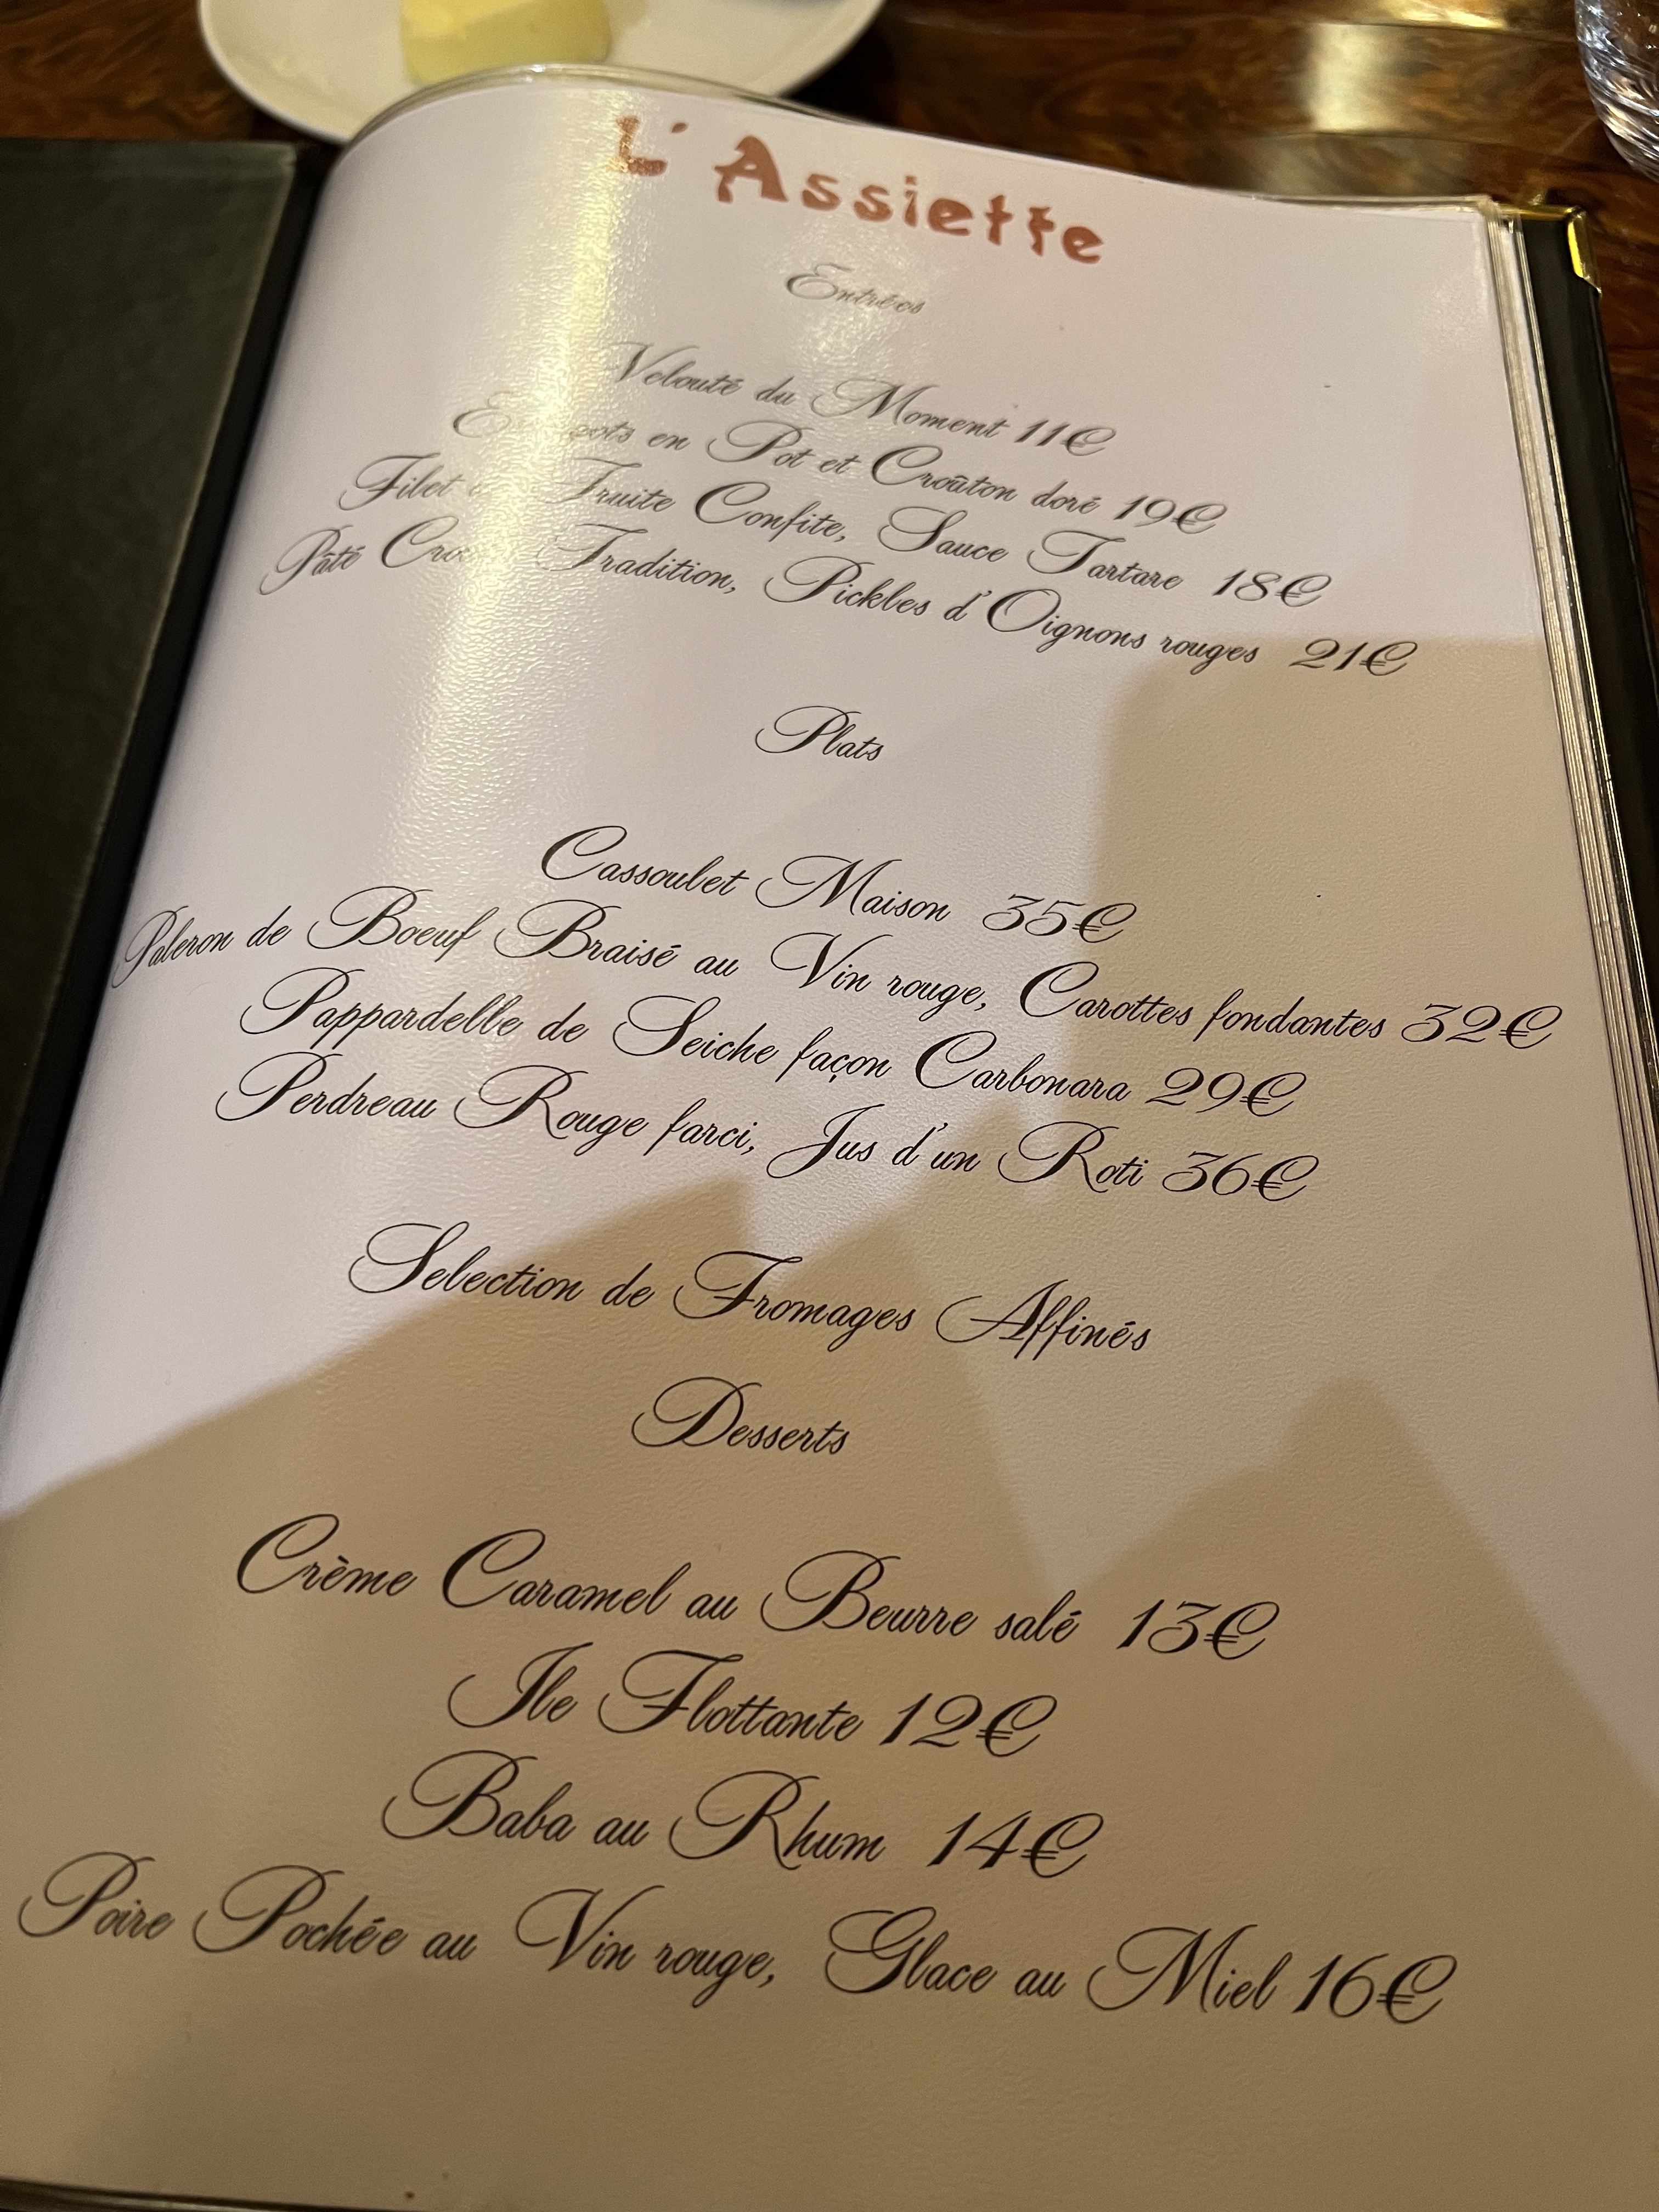 L'Assiette
Entrées
Velouté du Moment 11€
en Pot et Croûton doré 19€
Filet Truite Confite, Sauce Tartare 18€
Pâté Tradition, Pickles d'Oignons rouges 21€
Plats
Cassoulet Maison 35€
Paleron de Boeuf Braisé au Vin rouge, Carottes fondantes 32€
Pappardelle de Seiche façon Carbonara 29€
Perdreau Rouge farci, Jus d'un Roti 36€
Selection de Fromages Affinés
Desserts
Crème Caramel au Beurre salé 13€
Ile Flottante 12€
Baba au Rhum 14€
Poire Pochée au Vin rouge, Glace au Miel 16€